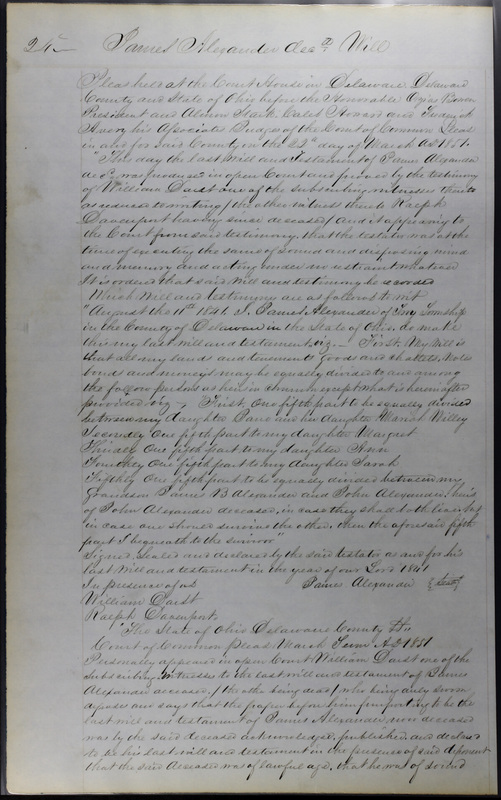 245 James Alexander decd Will
Pleas held at the Court House in Delaware Delaware
County and State of Ohio before the Honorable Ozias Bowen
President and Almon Stark Caleb Howard and Frederick
Avery his Associate Judges of the Court of Common Pleas
in and for said County on the 22d day of March AD 1851.
"This day the last Will and Testament of James Alexander
decd was produced in open Court and proved by the testimony
of William Darst one of the subscribing witnesses thereto
as reduced to writing / the other witness thereto Ralph
Davenport having since deceased / and it appearing to
the Court from said testimony that the testator was at the
time of executing the same of sound and disposing mind
and memory and acting under no restraint whatever
It is ordered that said Will and testimony be recorded
Which Will and testimony are as follows to wit
"August the 11th 1841 I, James Alexander of Troy Township
in the County of Delaware in the State of Ohio do make
this my last will and testament, viz. First, My Will is
that all my land and tenements goods and chattels, notes
bonds and moneys may be equally divided to and among
the following persons as heirs in common except what is hereinafter
provided viz - First, One fifth part to be equally divided
between my daughter Jane and her daughter Mariah Willey
Secondly One fifth part to my daughter Margret
Thirdly One fifth part to my daughter Ann
Fourthly One fifth part to my daughter Sarah
Fifthly One fifth part to be equally divided between my
Grandson James B Alexander and John Alexander, heirs
of John Alexander deceased, in case they shall both live, but
in case one should survive the other, then the aforesaid fifth
part I bequeath to the survivor"
Signed, sealed and declared by the said testator as and for his
last Will and testament in the year of our Lord 1841
In presence of us James Alexander {seal}
William Darst
Ralph Davenport
"The State of Ohio Delaware County ss,,
Court of Common Pleas March Term AD 1851
Personally appeared in open Court William Darst one of the
subscribing witnesses to the last will and testament of James
Alexander deceased, / the other being dead / who being duly sworn
deposes and says that the paper before him purporting to be the
last will and testament of James Alexander, now deceased
was by the said deceased acknowledged, published, and declared
to be his last will and testament in the presence of said deponent
that the said deceased was of lawful age, that he was of sound